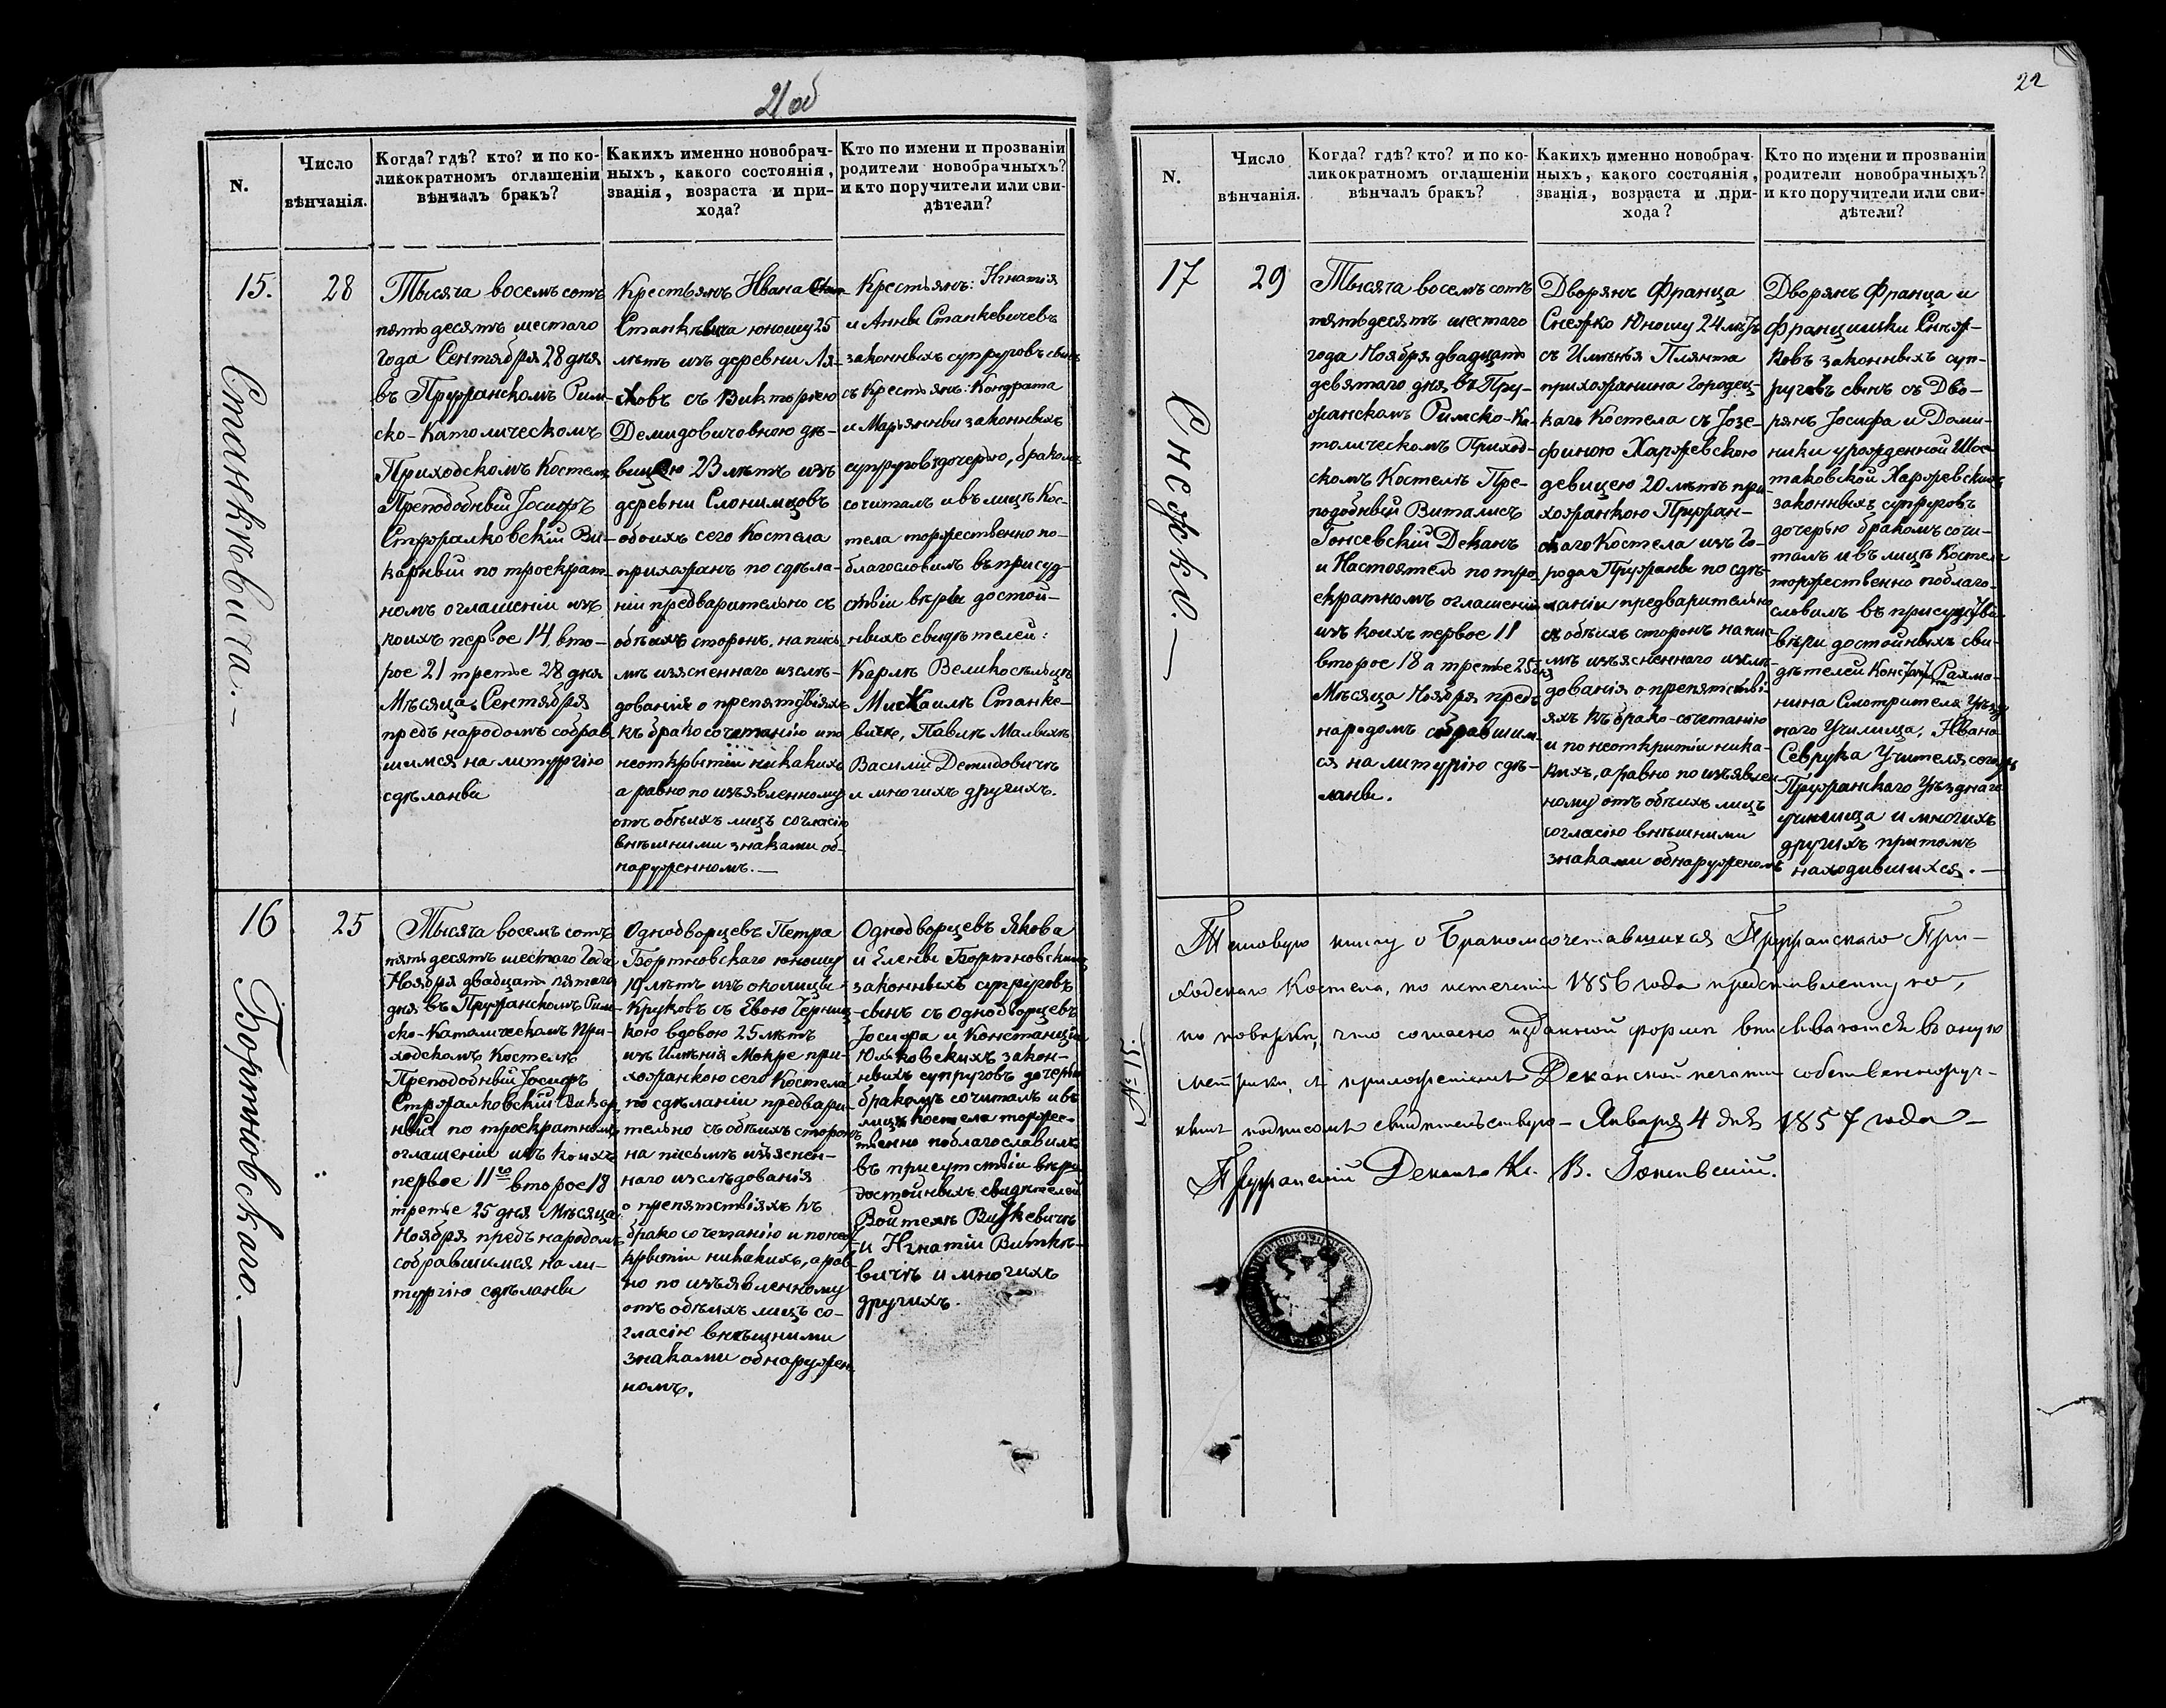 21 об
N.
Число
вѣнчанія.
Когда? гдѣ? кто? и по ко-
ликократномъ оглашеніи
вѣнчалъ бракъ?
Какихъ именно новобрач-
ныхъ, какого состоянія,
званія, возраста и при-
хода?
Кто по имени и прозваніи
родители новобрачныхъ?
и кто поручители или сви-
дѣтели?
15.
Станкѣвича. –
28
Тысяча восемъ сотъ
пятьдесятъ шестаго
года Сентября 28 дня
въ Пружанскомъ Рим-
ско-Католическомъ
Приходскомъ Костелѣ
Преподобный Іосифъ
Стржалковскій Ви-
карный по троекрат-
номъ оглашеніи изъ
коихъ первое 14 вто-
рое 21 третье 28 дня
Мѣсяца Сентября
предъ народомъ собрав-
шимся на литургію
сдѣланы
Крестьянъ Ивана
Станкѣвича юношу 25
лѣтъ изъ деревни Ля-
ховъ съ Викторіею
Демидовичовною дѣ-
вицею 23 лѣтъ изъ
деревни Слонимцовъ
обоихъ сего Костела
прихожанъ по сдѣла-
ніи предварительно съ
обѣихъ сторонъ, на пись-
мѣ изъясненнаго изслѣ-
дованія о препятствіяхъ
къ бракосочетанію и по
неоткрытіи никакихъ
а равно по изъявленному
отъ обѣихъ лицъ согласію
внѣшними знаками об-
наруженномъ. —
Крестьянъ: Игнатія
и Анны Станкевичевъ
законныхъ супруговъ сынъ
съ Крестьянъ: Кондрата
и Марьянны законныхъ
супруговъ дочерью, бракомъ
сочиталъ и въ лицѣ Кос-
тела торжественно по-
благословилъ въ присуд-
ствіи вѣры достой-
ныхъ свидѣтелей:
Карлѣ Великосѣльцѣ
Михаилѣ Станке-
вичѣ, Павлѣ Малыхѣ
Василіи Демидовичѣ
и многихъ другихъ.
16
Бортновскаго. —
25
Тысяча восемъ сотъ
пятьдесятъ шестаго Года
Ноября двадцать пятаго
дня въ Пружанскомъ Рим-
ско-Католическомъ При-
ходскомъ Костелѣ
Преподобный Іосифъ
Стржалковскій Викар-
ный по троекратномъ
оглашеніи изъ коихъ
первое 11го второе 18
третье 25 дня Мѣсяца
Ноября предъ народомъ
собравшимся на ли-
тургію сдѣланы
Однодворцевъ Петра
Бортновскаго юношу
19 лѣтъ изъ околицы
Круковъ съ Евою Черниц-
кою вдовою 25 лѣтъ
изъ Имѣнія Мокре при-
хожанкою сего Костела
по сдѣланіи предвари-
тельно съ обѣихъ сторонъ
на письмѣ изъяснен-
наго изслѣдованія
о препятствіяхъ къ
бракосочетанію и по неот-
крытіи никакихъ, а рав-
но по изъявленному
отъ обѣихъ лицъ со-
гласію внѣшними
знаками обнаружен-
номъ.
Однодворцевъ Якова
и Елены Бортновскихъ
законныхъ супруговъ
сынъ съ Однодворцевъ
Іосифа и Констанціи
законныхъ супруговъ дочерью
бракомъ сочиталъ и въ
лицѣ костела торжес-
твенно поблагославилъ
въ присутствіи вѣры
достойныхъ свидѣтелей
Войтехѣ Виткевичѣ
и Игнатіи Виткѣ-
вичѣ и многихъ
другихъ.
22
N.
Число
вѣнчанія.
Когда? гдѣ? кто? и по ко-
ликократномъ оглашеніи
вѣнчалъ бракъ?
Какихъ именно новобрач-
ныхъ, какого состоянія,
званія, возраста и при-
хода?
Кто по имени и прозваніи
родители новобрачныхъ?
и кто поручители или сви-
дѣтели?
17
Снежко. —
29
Тысяча восемъ сотъ
пятьдесятъ шестаго
года Ноября двадцать
девятаго дня въ Пру-
жанскомъ Римско-Ка-
толическомъ Приход-
скомъ Костелѣ Пре-
подобный Виталисъ
Гонсевскій Деканъ
и Настоятель по тро-
екратномъ оглашеніи
изъ коихъ первое 11
второе 18 а третье 25 дня
Мѣсяца Ноября предъ
народомъ собравшим-
ся на литургію сдѣ-
ланы.
Дворянъ Франца
Снежко Юношу 24 лѣтъ
съ Имѣнья Плянта
прихожанина Городец-
каго Костела съ Іозе-
финою Харжевскою
девицею 20 лѣтъ при-
хожанкою Пружан-
скаго Костела изъ Го-
рода Пружаны по сдѣ-
ланіи предварительно
съ обѣихъ сторонъ на пись-
мѣ изъясненнаго изслѣ-
дованія о препятстві-
яхъ къ брако-сочетанію
и по неоткрытіи ника-
кихъ, а равно по изъявлен-
ному отъ обѣихъ лицъ
согласію внѣшними
знаками обнаруженомъ
Дворянъ Франца и
Францишки Снѣж-
ковъ законныхъ суп-
руговъ сынъ съ Дво-
рянъ Іосифа и Доми-
ники урожденной Шос-
таковской Харжевскихъ
законныхъ супруговъ
дочерью бракомъ сочи-
талъ и въ лицѣ Костела
торжественно поблаго-
словилъ въ присудстви
вѣры достойныхъ сви-
дѣтелей
Смотрителя Уѣзд-
наго Училища, Ивана
Севрука Учителя
Пружанскаго Уѣзднаго
училища и многихъ
другихъ притомъ
находившихся. —
№ 15.
Таковую книгу о Бракомсочетавшихся Пружанскаго При-
ходскаго Костела, по истеченіи 1856 года представленную,
по повѣркѣ, что согласно изданной формы вписываются въ оную
метрики, съ приложеніемъ Деканской печати собственноруч-
нымъ подписомъ свидѣтельствую – Января 4 дня 1857 года –
Пружанскій Деканъ Кс. В. Гонсевскій.